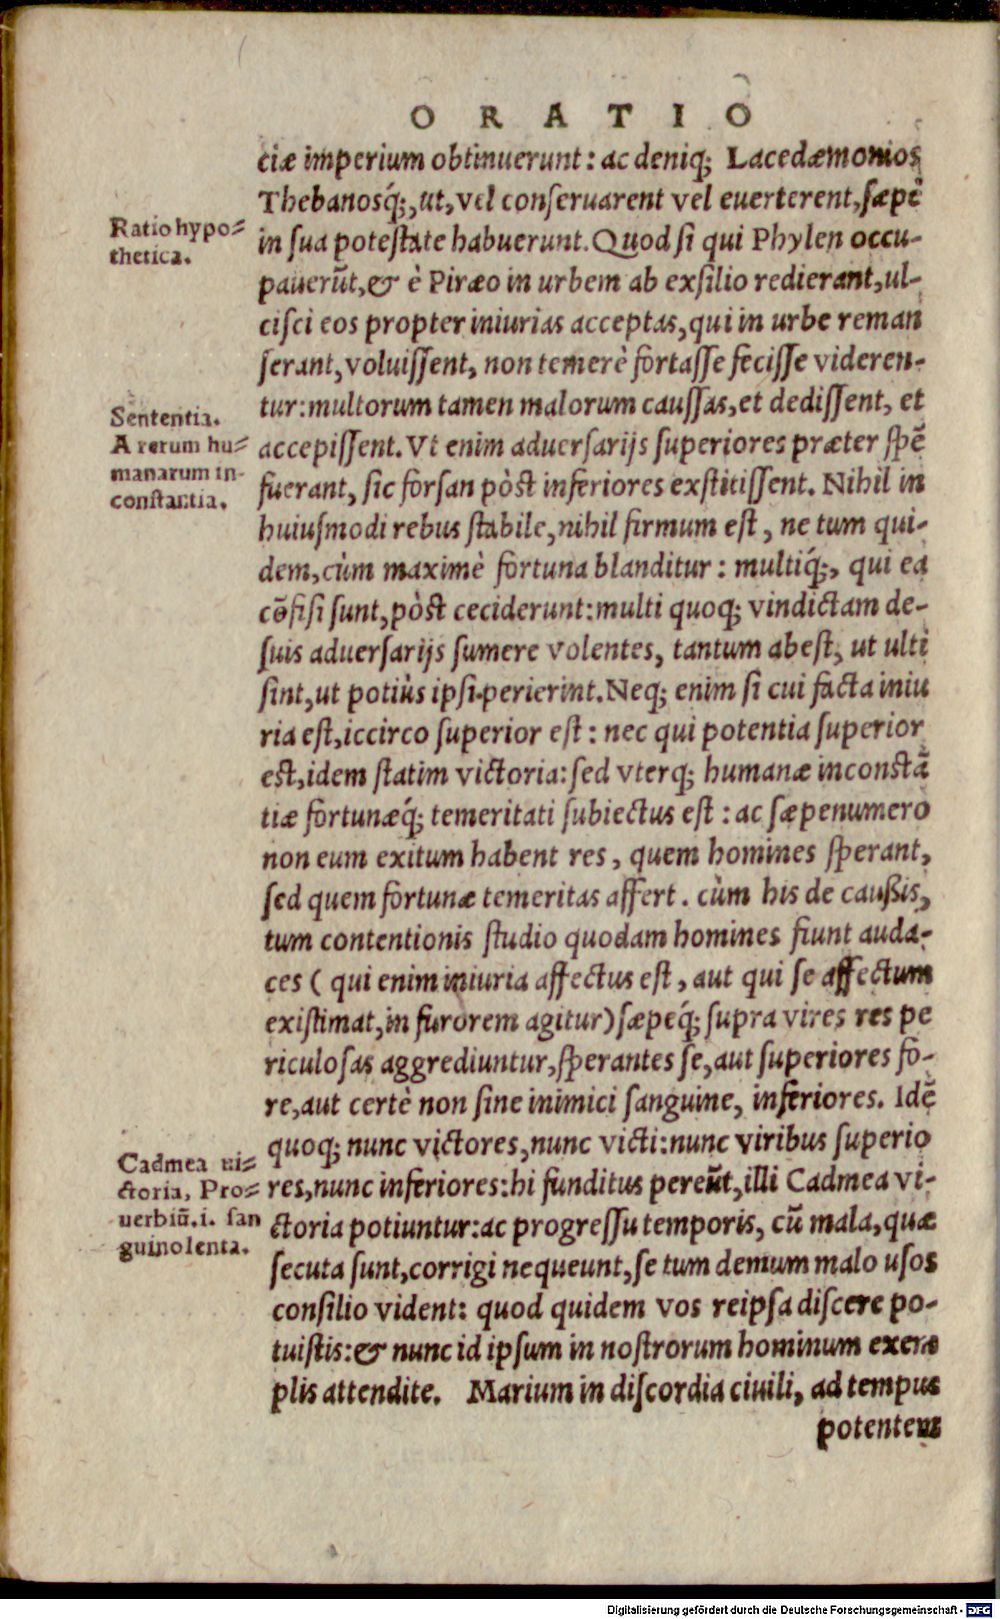 ORATIO
ciæ imperium obtinuerunt: ac deniq; Lacedæmonios
Thebanosq́;, ut, vel conſeruarent vel euerterent, ſæpè
Ratio hypo=
thetica.
in ſua poteſtate habuerunt. Quod ſi qui Phylen occu-
pauerūt, & è Piræo in urbem ab exſilio redierant, ul-
ciſci eos propter iniurias acceptas, qui in urbe reman
ſerant, voluiſſent, non temerè fortaſſe feciſſe videren-
Sententia.
A rerum hu=
manarum in-
conſtantia.
tur: multorum tamen malorum cauſſas, et dediſſent, et
accepiſſent. Vt enim aduerſarijs ſuperiores præter ſpē
fuerant, ſic forſan pòſt inferiores exſtitiſſent. Nihil in
huiuſmodi rebus ſtabile, nihil firmum eſt, ne tum qui-
dem, cùm maximè fortuna blanditur: multiq́;, qui ea
cōfiſi ſunt, pòſt ceciderunt: multi quoq; vindictam de-
ſuis aduerſarijs ſumere volentes, tantum abeſt, ut ulti
ſint, ut potiùs ipſi perierint. Neq; enim ſi cui facta iniu
ria eſt, iccirco ſuperior eſt: nec qui potentia ſuperior
eſt, idem ſtatim victoria: ſed vterq; humanæ inconſtā
tiæ fortunæq́; temeritati ſubiectus eſt: ac ſæpenumero
non eum exitum habent res, quem homines ſperant,
ſed quem fortunæ temeritas affert. cùm his de cauſſis,
tum contentionis ſtudio quodam homines fiunt auda-
ces (qui enim iniuria affectus eſt, aut qui ſe affectum
exiſtimat, in furorem agitur) ſæpeq́; ſupra vires res pe
riculoſas aggrediuntur, ſperantes ſe, aut ſuperiores fo-
re, aut certè non ſine inimici ſanguine, inferiores. Idē
quoq; nunc victores, nunc victi: nunc viribus ſuperio
Cadmea ui=
ctoria, Pro=
uerbiū. i. ſan
guinolenta.
res, nunc inferiores: hi funditus pereūt, illi Cadmea vi-
ctoria potiuntur: ac progreſſu temporis, cū mala, quæ
ſecuta ſunt, corrigi nequeunt, ſe tum demum malo uſos
conſilio vident: quod quidem vos reipſa diſcere po-
tuiſtis: & nunc id ipſum in noſtrorum hominum exem
plis attendite. Marium in diſcordia ciuili, ad tempus
potentem
Digitalisierung gefördert durch die Deutsche Forschungsgemeinschaft - DFG